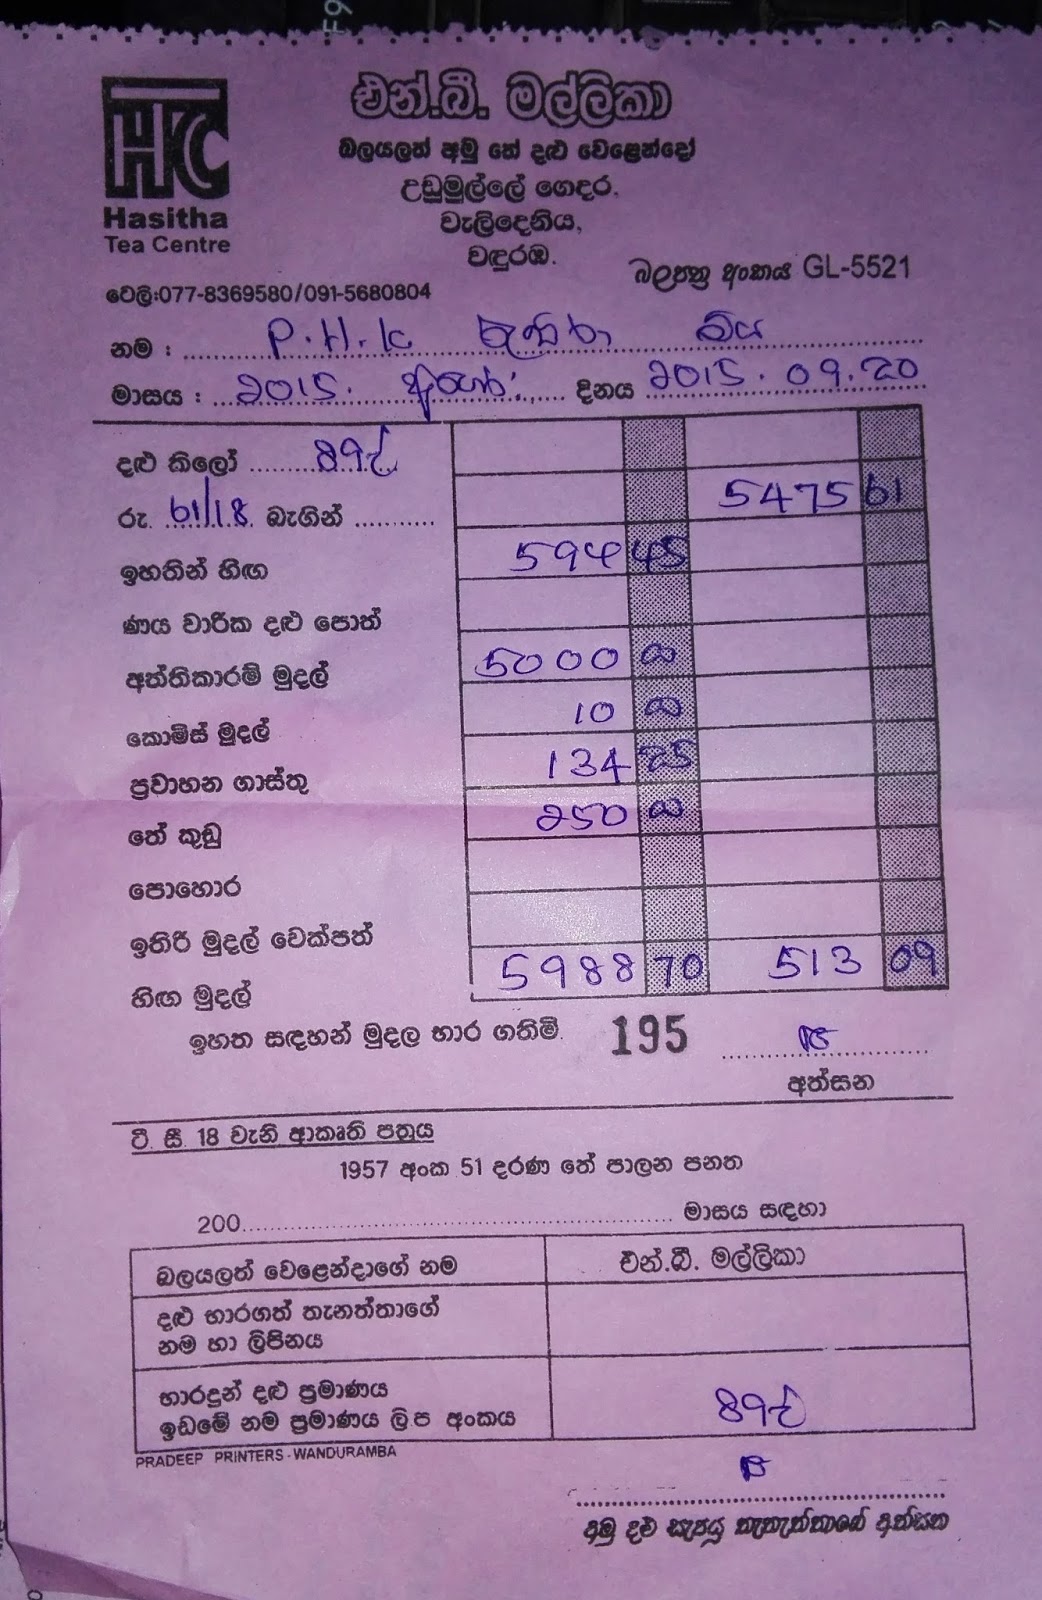 එන්.බී. මල්ලිකා
HC
Hasitha
Tea Centre
බලයලත් අමු තේ දළු වෙළෙන්දෝ
උඩුමුල්ලේ ගෙදර,
වැලිදෙනිය,
වඳුරඹ.
බලපත්‍ර අංකය GL-5521
ටෙලි:077-8369580/091-5680804
නම : P.H.K
මාසය : 2015. අගෝ: දිනය 2015.09.20
දළු කිලෝ 89½
රු. 61/18 බැගින් 5475 61
ඉහතින් හිඟ 594 45
ණය වාරික දළු පොත්
අත්තිකාරම් මුදල් 5000 00
කොමිස් මුදල් 10 00
ප්‍රවාහන ගාස්තු 134 25
තේ කුඩු 250 00
පොහොර
ඉතිරි මුදල් චෙක්පත්
හිඟ මුදල් 5988 70 513 09
ඉහත සඳහන් මුදල භාර ගතිමි. 195
අත්සන
ටී. සී. 18 වැනි ආකෘති පත්‍රය
1957 අංක 51 දරණ තේ පාලන පනත
200 මාසය සඳහා
බලයලත් වෙළෙන්දාගේ නම එන්.බී. මල්ලිකා
දළු භාරගත් තැනත්තාගේ
නම හා ලිපිනය
භාරදුන් දළු ප්‍රමාණය
ඉඩමේ නම ප්‍රමාණය ලි.ප අංකය 89½
PRADEEP PRINTERS - WANDURAMBA
අමු දළු සැපයූ තැනැත්තාගේ අත්සන